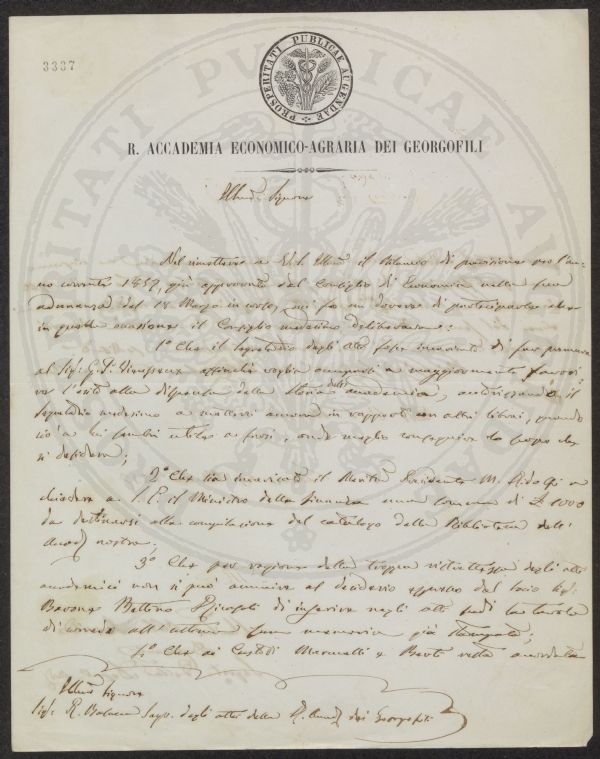 3337
PROSPERITATI PUBLICAE AUGENDAE
R. ACCADEMIA ECONOMICO-AGRARIA DEI GEORGOFILI
Illmo. Signore
Nel rimettere a il Bilancio di previsione per l'an-
no corrente 1857, già approvato dal Consiglio di Economia nella sua
adunanza del 18 Marzo in corso, mi fo un dovere di parteciparle che
in quella occasione il Consiglio medesimo deliberava:
1.o Che il Segretario degli Atti fosse incaricato di far premura
al Sig: G. P. Vieusseux affinchè voglia a maggiormente favori
re l'esito alla dispensa della Storia dell' Accademia, autorizzando il
Segretario medesimo a mettersi ancora in rapporto con altri librai, quando
ciò a lui sembri utile, onde meglio conseguire lo scopo che
si desidera;
2.o Che sia incaricato il Presidente M. Ridolfi a
chiedere a S. E. il Ministro delle Finanze una somma di £ 1000
da destinarsi alla compilazione del catalogo della Biblioteca dell'
nostra;
3.o Che per ragione della troppa ristrettezza degli atti
accademici non si può annuire al desiderio espresso dal socio Sig:
Barone Bettino Ricasoli di inserire negli atti le tavole
di corredo all'ultima sua memoria già stampata;
4.o Che ai Custodi e Conti resta accordata
Illmo Signore
Sig: R. Segr. degli atti della R. Accad. dei Georgofili